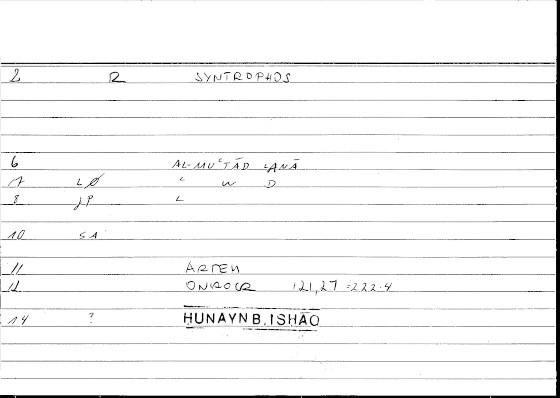 2 R SYNTROPHOS
6 AL-MUʿTĀD ʿANĀ
7 LØ ʿ W D
8 JP L
10 SA
11 ARTEM
12 ONIROCR 121,27 = 222.4
14 ? HUNAYN B. ISHĀQ